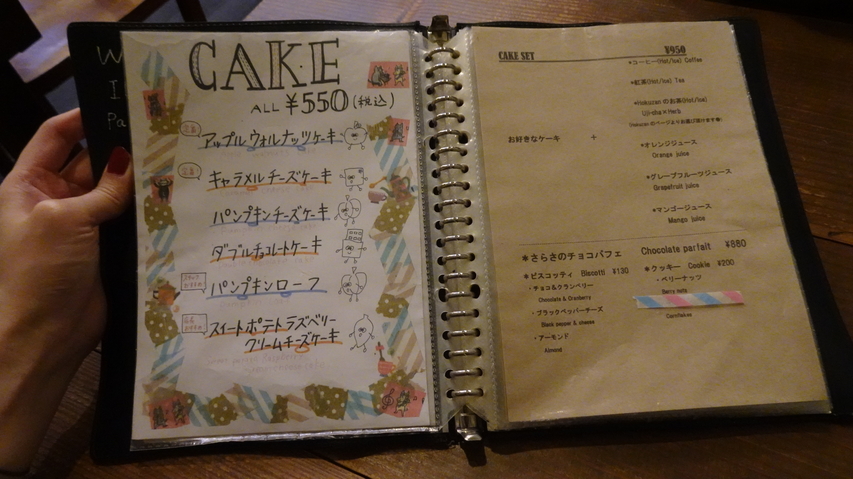 CAKE
ALL ¥550(税込)
アップルウォルナッツケーキ
キャラメルチーズケーキ
パンプキンチーズケーキ
ダブルチョコレートケーキ
パンプキンローフ
スイートポテトラズベリー
クリームチーズケーキ
CAKE SET ¥950
お好きなケーキ +
*コーヒー(Hot/Ice) Coffee
*紅茶(Hot/Ice) Tea
*Hokuzan のお茶(Hot/Ice)
Uji-sha×Herb
*オレンジジュース
Orange juice
*グレープフルーツジュース
Grapefruit juice
*マンゴージュース
Mango juice
*さらさのチョコパフェ Chocolate parfait ¥880
*ビスコッティ Biscotti ¥130
・チョコ&クランベリー
Chocolate & Cranberry
・ブラックペッパーチーズ
Black pepper & cheese
・アーモンド
Almond
*クッキー Cookie ¥200
・ベリーナッツ
Berry nuts
Cornflakes